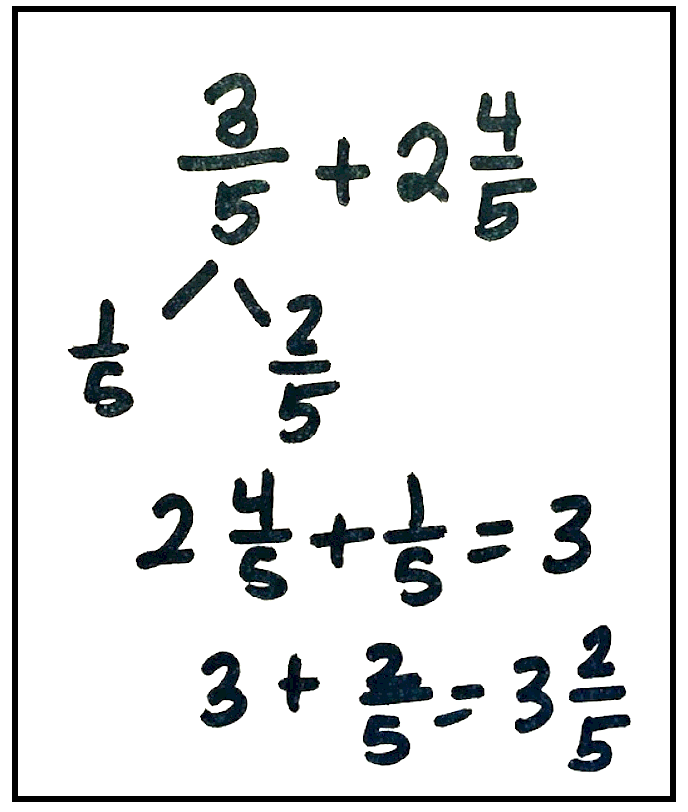 3/5 + 2 4/5
1/5 2/5
2 4/5 + 1/5 = 3
3 + 2/5 = 3 2/5